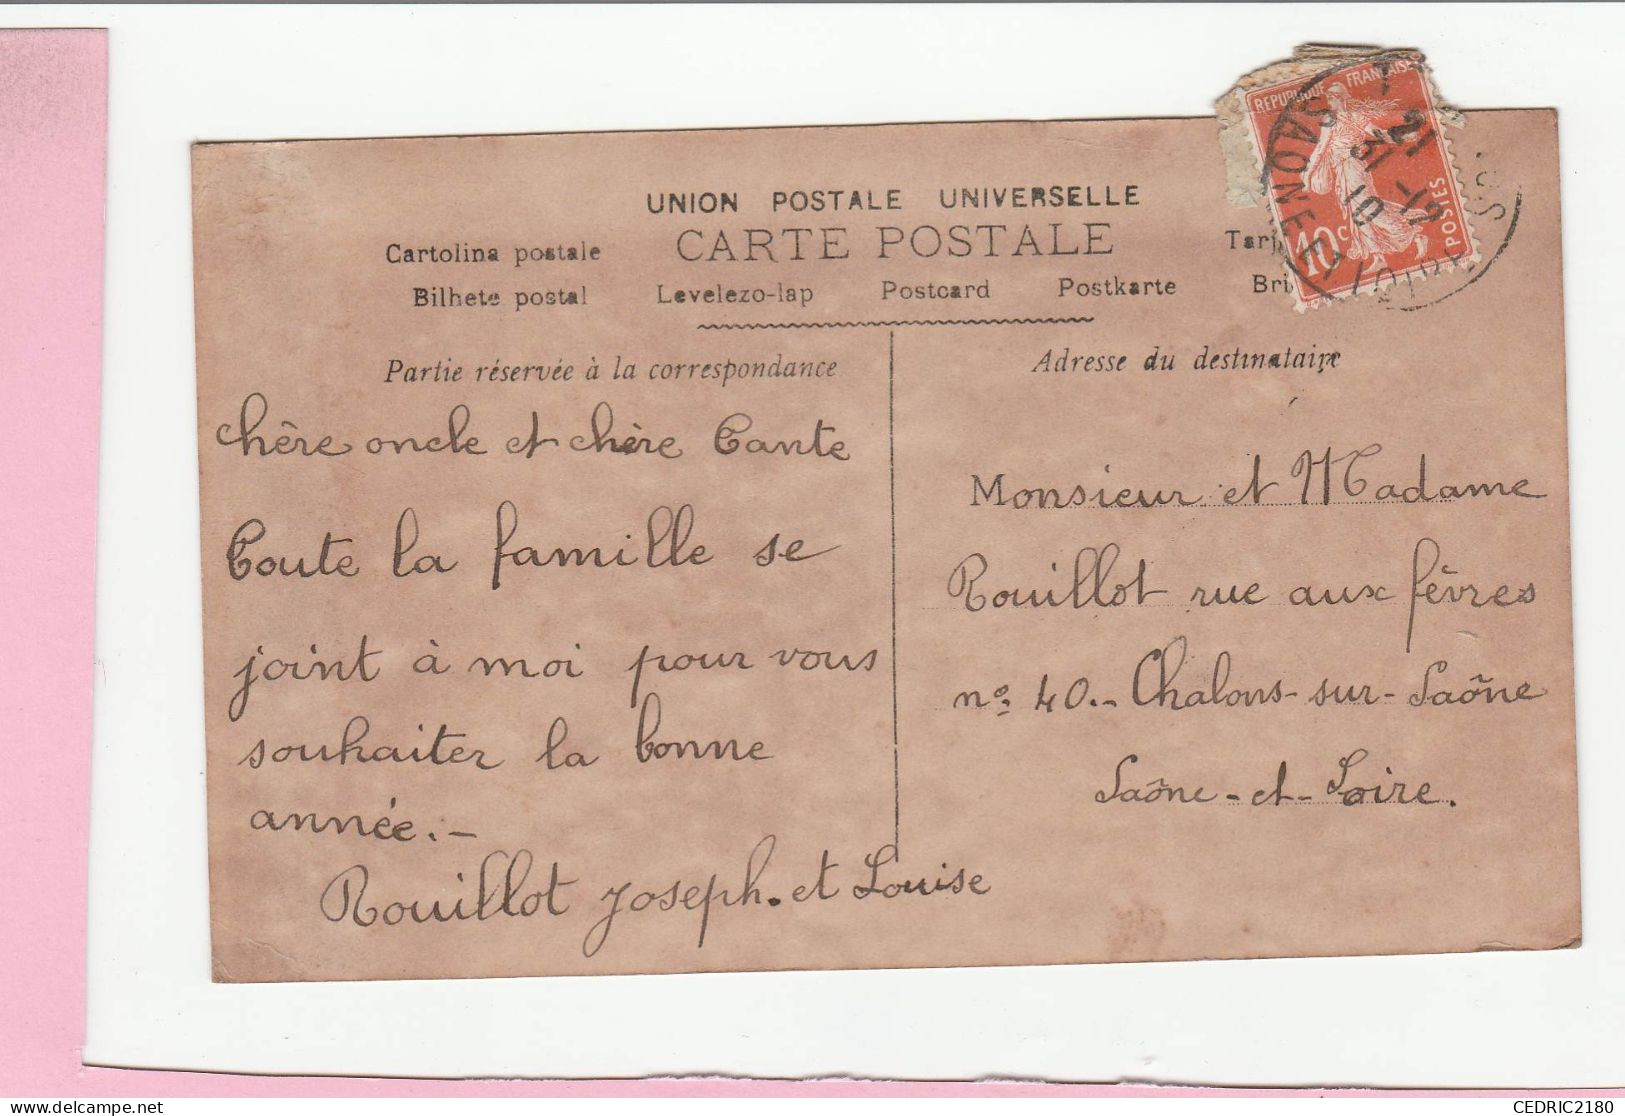 UNION POSTALE UNIVERSELLE
Cartolina postale CARTE POSTALE
Bilhete postal Levelezo-lap Postcard Postkarte
REPUBLIQUE FRANÇAISE
10c POSTES
SAONE
21
31 -12
10
Partie réservée à la correspondance
chère oncle et chère Tante
Toute la famille se
joint à moi pour vous
souhaiter la bonne
année.-
Rouillot Joseph. et Louise
Adresse du destinataire
Monsieur et Madame
Rouillot rue aux fèvres
nº 40.- Chalons-sur-Saône
Saône-et-Loire.
CEDRIC2180